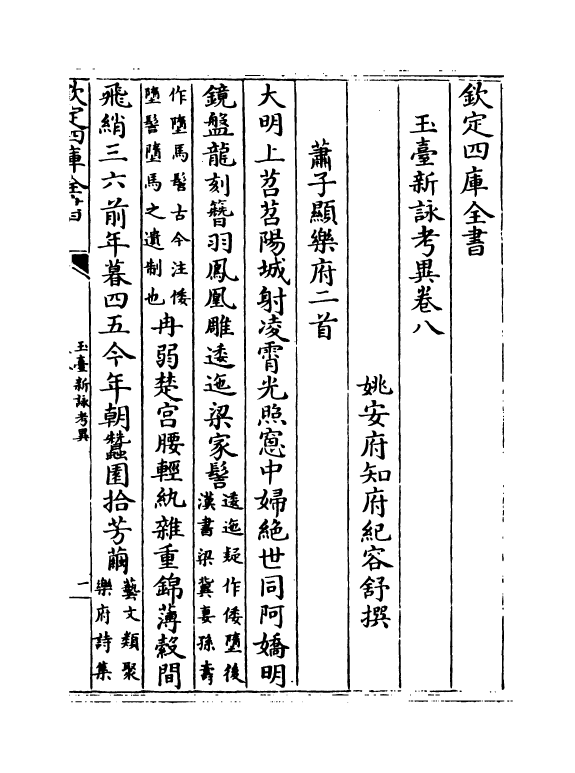 欽定四庫全書
玉臺新詠考異卷八
姚安府知府紀容舒撰
蕭子顯樂府二首
大明上苕苕陽城射凌霄光照窓中婦絶世同阿嬌明
鏡盤龍刻簪羽鳳凰雕逶迤梁家髻
逶迤疑作倭墮後
漢書梁冀妻孫壽
作墮馬髻古今注倭
墮髻墮馬之遺制也
冉弱楚宮腰輕紈雜重錦薄縠間
飛綃三六前年暮四五今年朝蠶園拾芳繭
藝文類聚
樂府詩集
欽定四庫全書
玉臺新詠考異
一